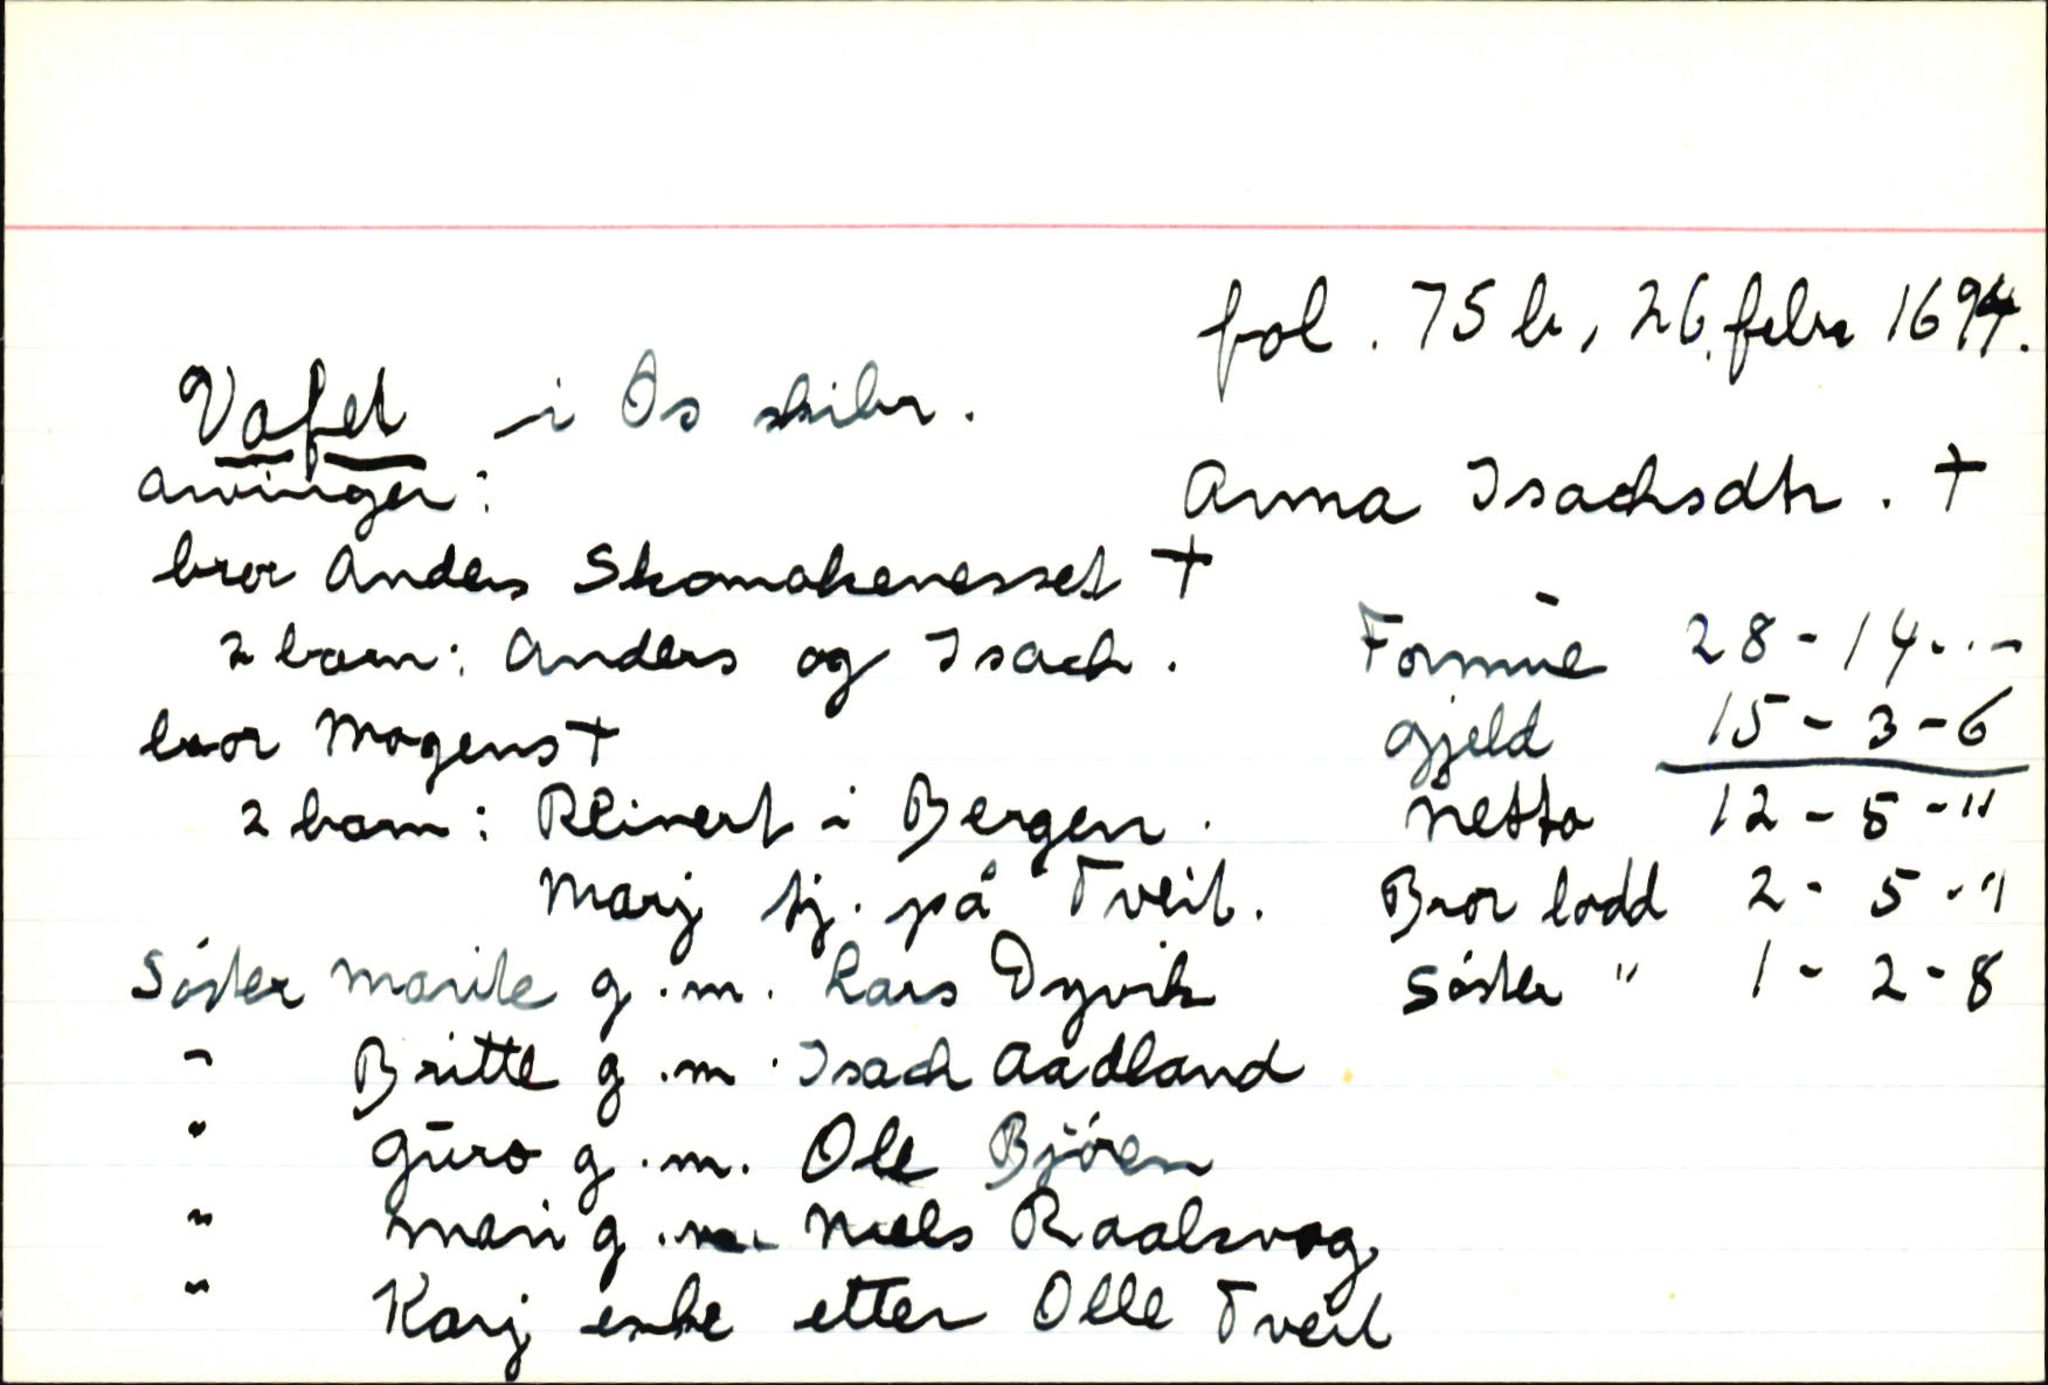 fol. 75 b, 26 febr 1694.
Vafet i Os skibr.
arvinger:
Anna Isachsdtr. +
bror Anders Skomakenesset +
2 barn: Anders og Isach.
Formue 28 - 14 - . . -
bror Mogens +
gjeld 15 - 3 - 6
2 barn: Reinert i Bergen.
Netto 12 - 5 - "
Marj tj. på Tveit.
Bror lodd 2 - 5 - "
Søster Marite g.m. Lars Dyvik
Søster " 1 - 2 - 8
" Britte g.m. Isach Aadland
" Guro g.m. Ole Bjøren
" Mari g.m. Niels Raaksvog
" Karj enke etter Olle Tveit